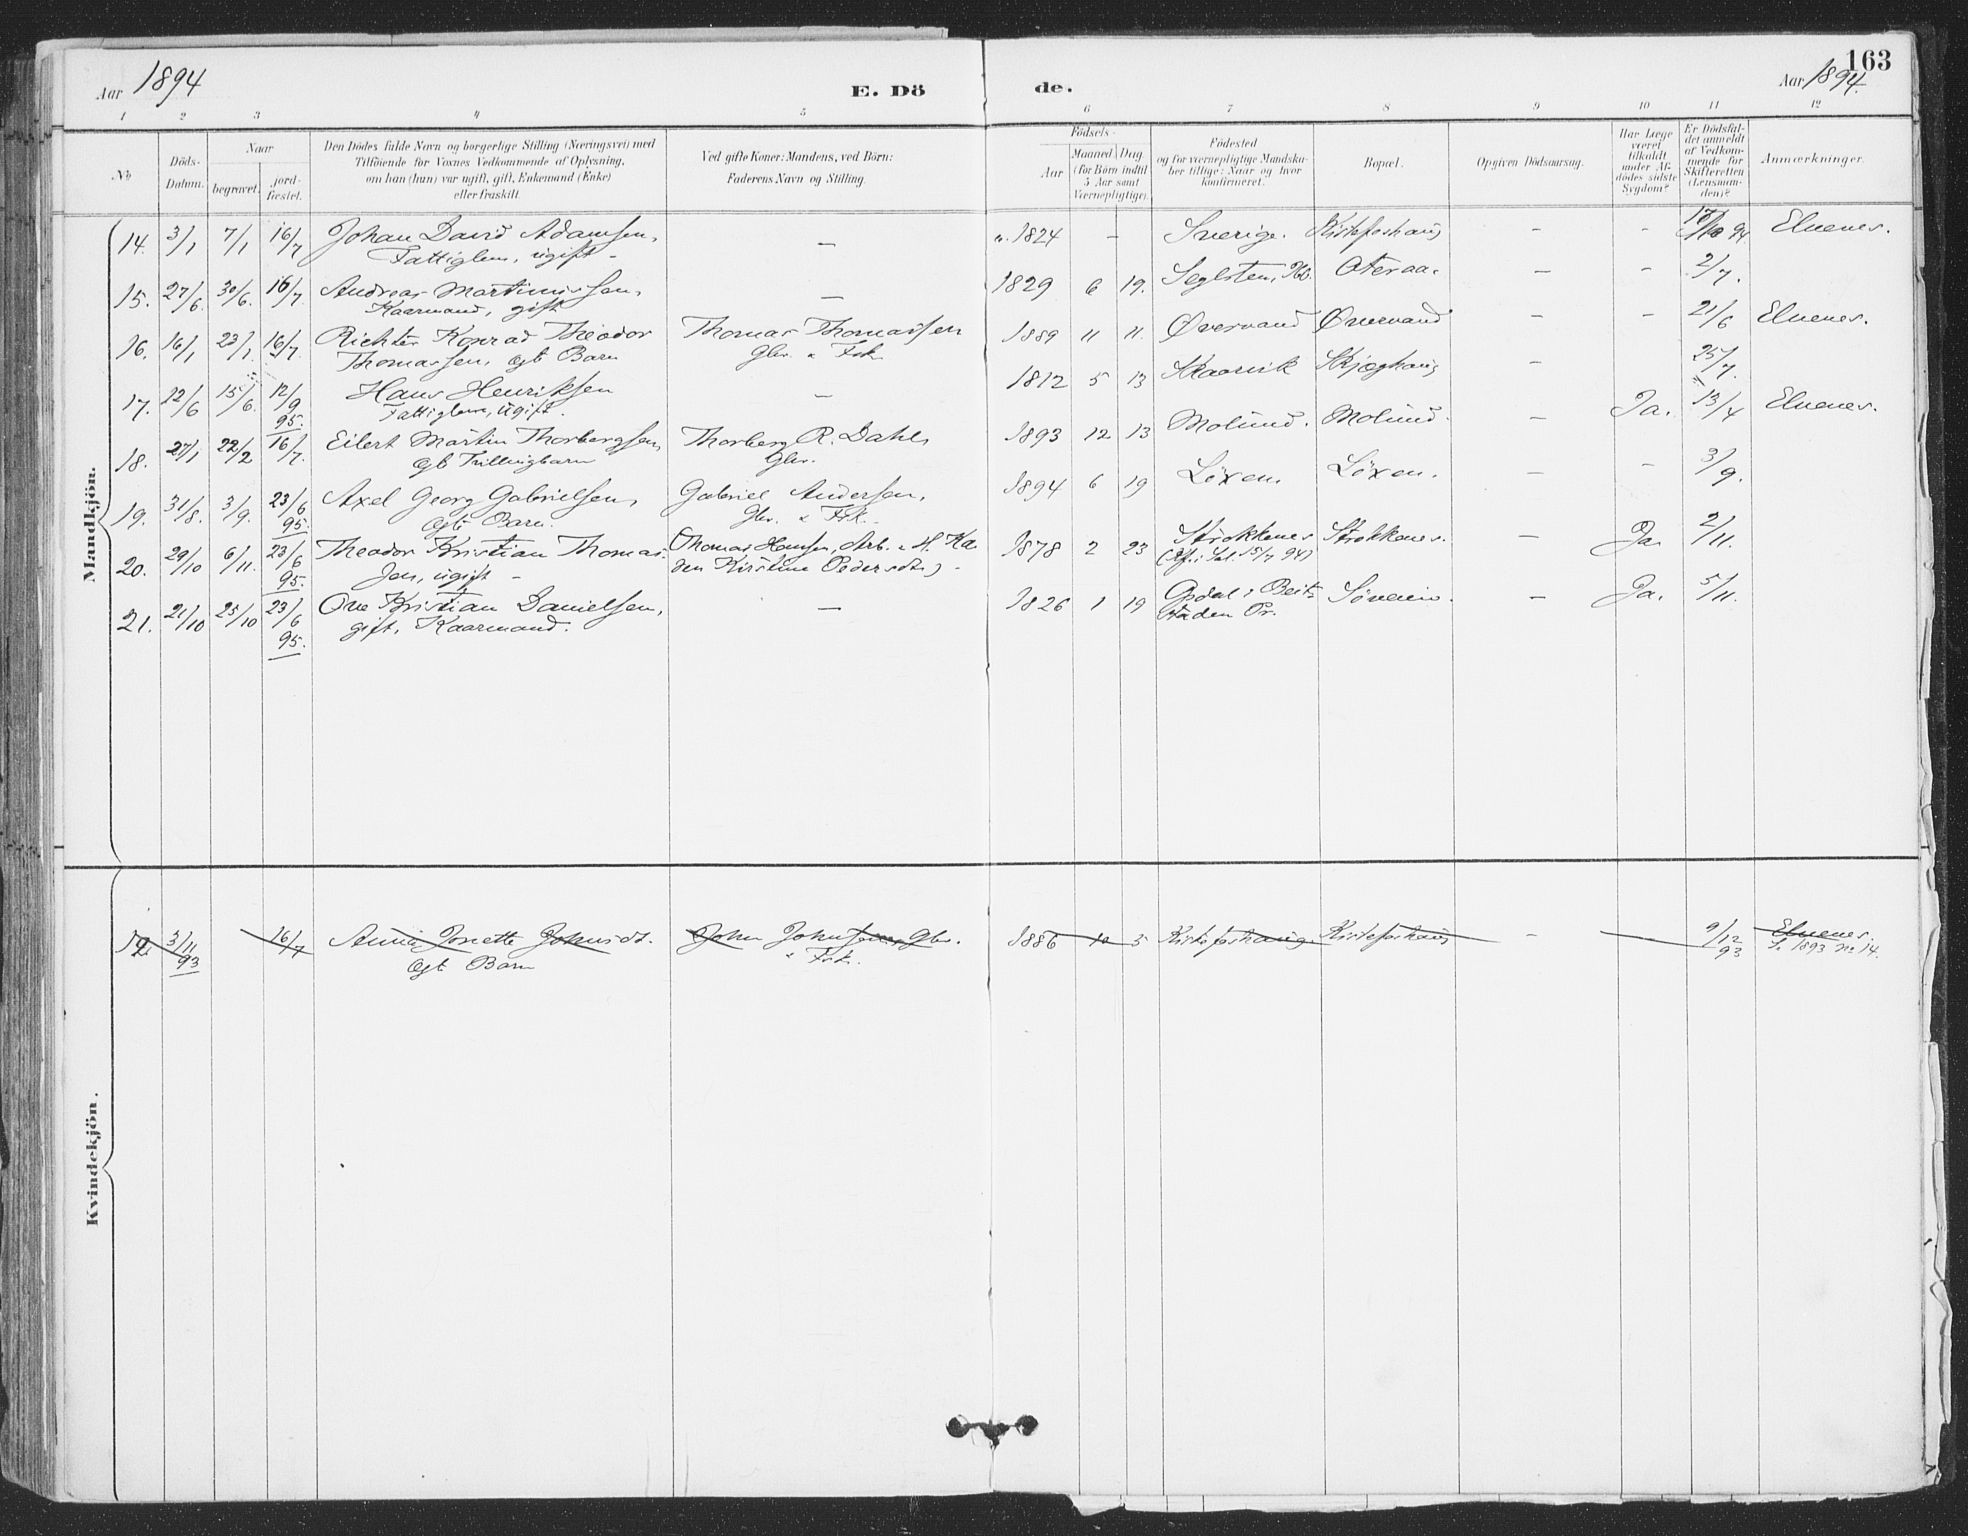 163
Aar 1894 E. Dö de. Aar 1894.
1 2 3 4 5 6 7 8 9 10 11 12
No. Döds-Datum. Naar begravet. jordfæstet. Den Dödes fulde Navn og borgerlige Stilling (Næringsvei) med Tilföiende for Voxnes Vedkommende af Oplysning, om han (hun) var ugift, gift, Enkemand (Enke) eller fraskilt. Ved gifte Koner: Mandens, ved Börn: Faderens Navn og Stilling. Födsels- Aar Maaned Dag. (for Börn indtil 5 Aar samt Værnepligtige). Födested og for værnepligtige Mandskaber tillige: Naar og hvor konfirmeret. Bopæl. Opgiven Dödsaarsag. Har Læge været tilkaldt under Afdödes sidste Sygdom? Er Dödsfaldet anmeldt af Vedkommende for Skifteretten (Lensmanden)? Anmærkninger.
Mandkjön.
14. 3/1 7/1 16/7 Johan David Adamsen, — 1824 — Sverige. Kistefoshaug — — 94 Elvenes.
Fattiglem, ugift —
15. 27/6 30/6 16/7 Andreas Martinussen, — 1829 6 19. Seglsten, Oteraa. — — 2/7.
Kaarmand, gift
16. 16/1 23/1 16/7 Richter Konrad Theodor Thomas Thomassen 1889 11 11. Øvervand Øvervand — — 21/6 Elvenes.
Thomassen, egt Barn Gbr. & Fsk.
17. 12/6 15/6. 12/9 95. Hans Henriksen — 1812 5 13 Skaarvik Skjæghaug — 25/7.
Fattiglem, ugift.
18. 27/1 22/2 16/7. Eilert Martin Thorbergsen, Thorberg R. Dahl, 1893 12 13 Molund. Molund. — Ja. 13/4 Elvenes.
egt Tvillingbarn Gbr.
19. 31/8. 3/9. 23/6 95. Axel Georg Gabrielsen, Gabriel Andersen, 1894 6 19 Löxen. Löxen. — — 3/9.
egt Barn. Gbr. & Fsk.
20. 29/10 6/11. 23/6 95. Theodor Kristian Thomas- Thomas Hansen, Arb. 1878 2 23 Strokkenes Strokkenes. — Ja 2/11.
sen, ugift — Kirstine Pedersdtr) — 15/7 94)
21. 21/10 25/10 23/6 95. Ove Kristian Danielsen, — 1826 1 19 Opdal i Beit- Söveien. — Ja. 5/11.
gift, Kaarmand. staden Pr.
Kvindekjön.
3/11 93 16/7 Anna Jonette Johnsdt. John Johnsen, Gbr. 1886 10 5 Kistefoshaug. Kistefoshaug — 9/12 93 Elvenes.
egt Barn & Fsk. S. 1893 No 14.